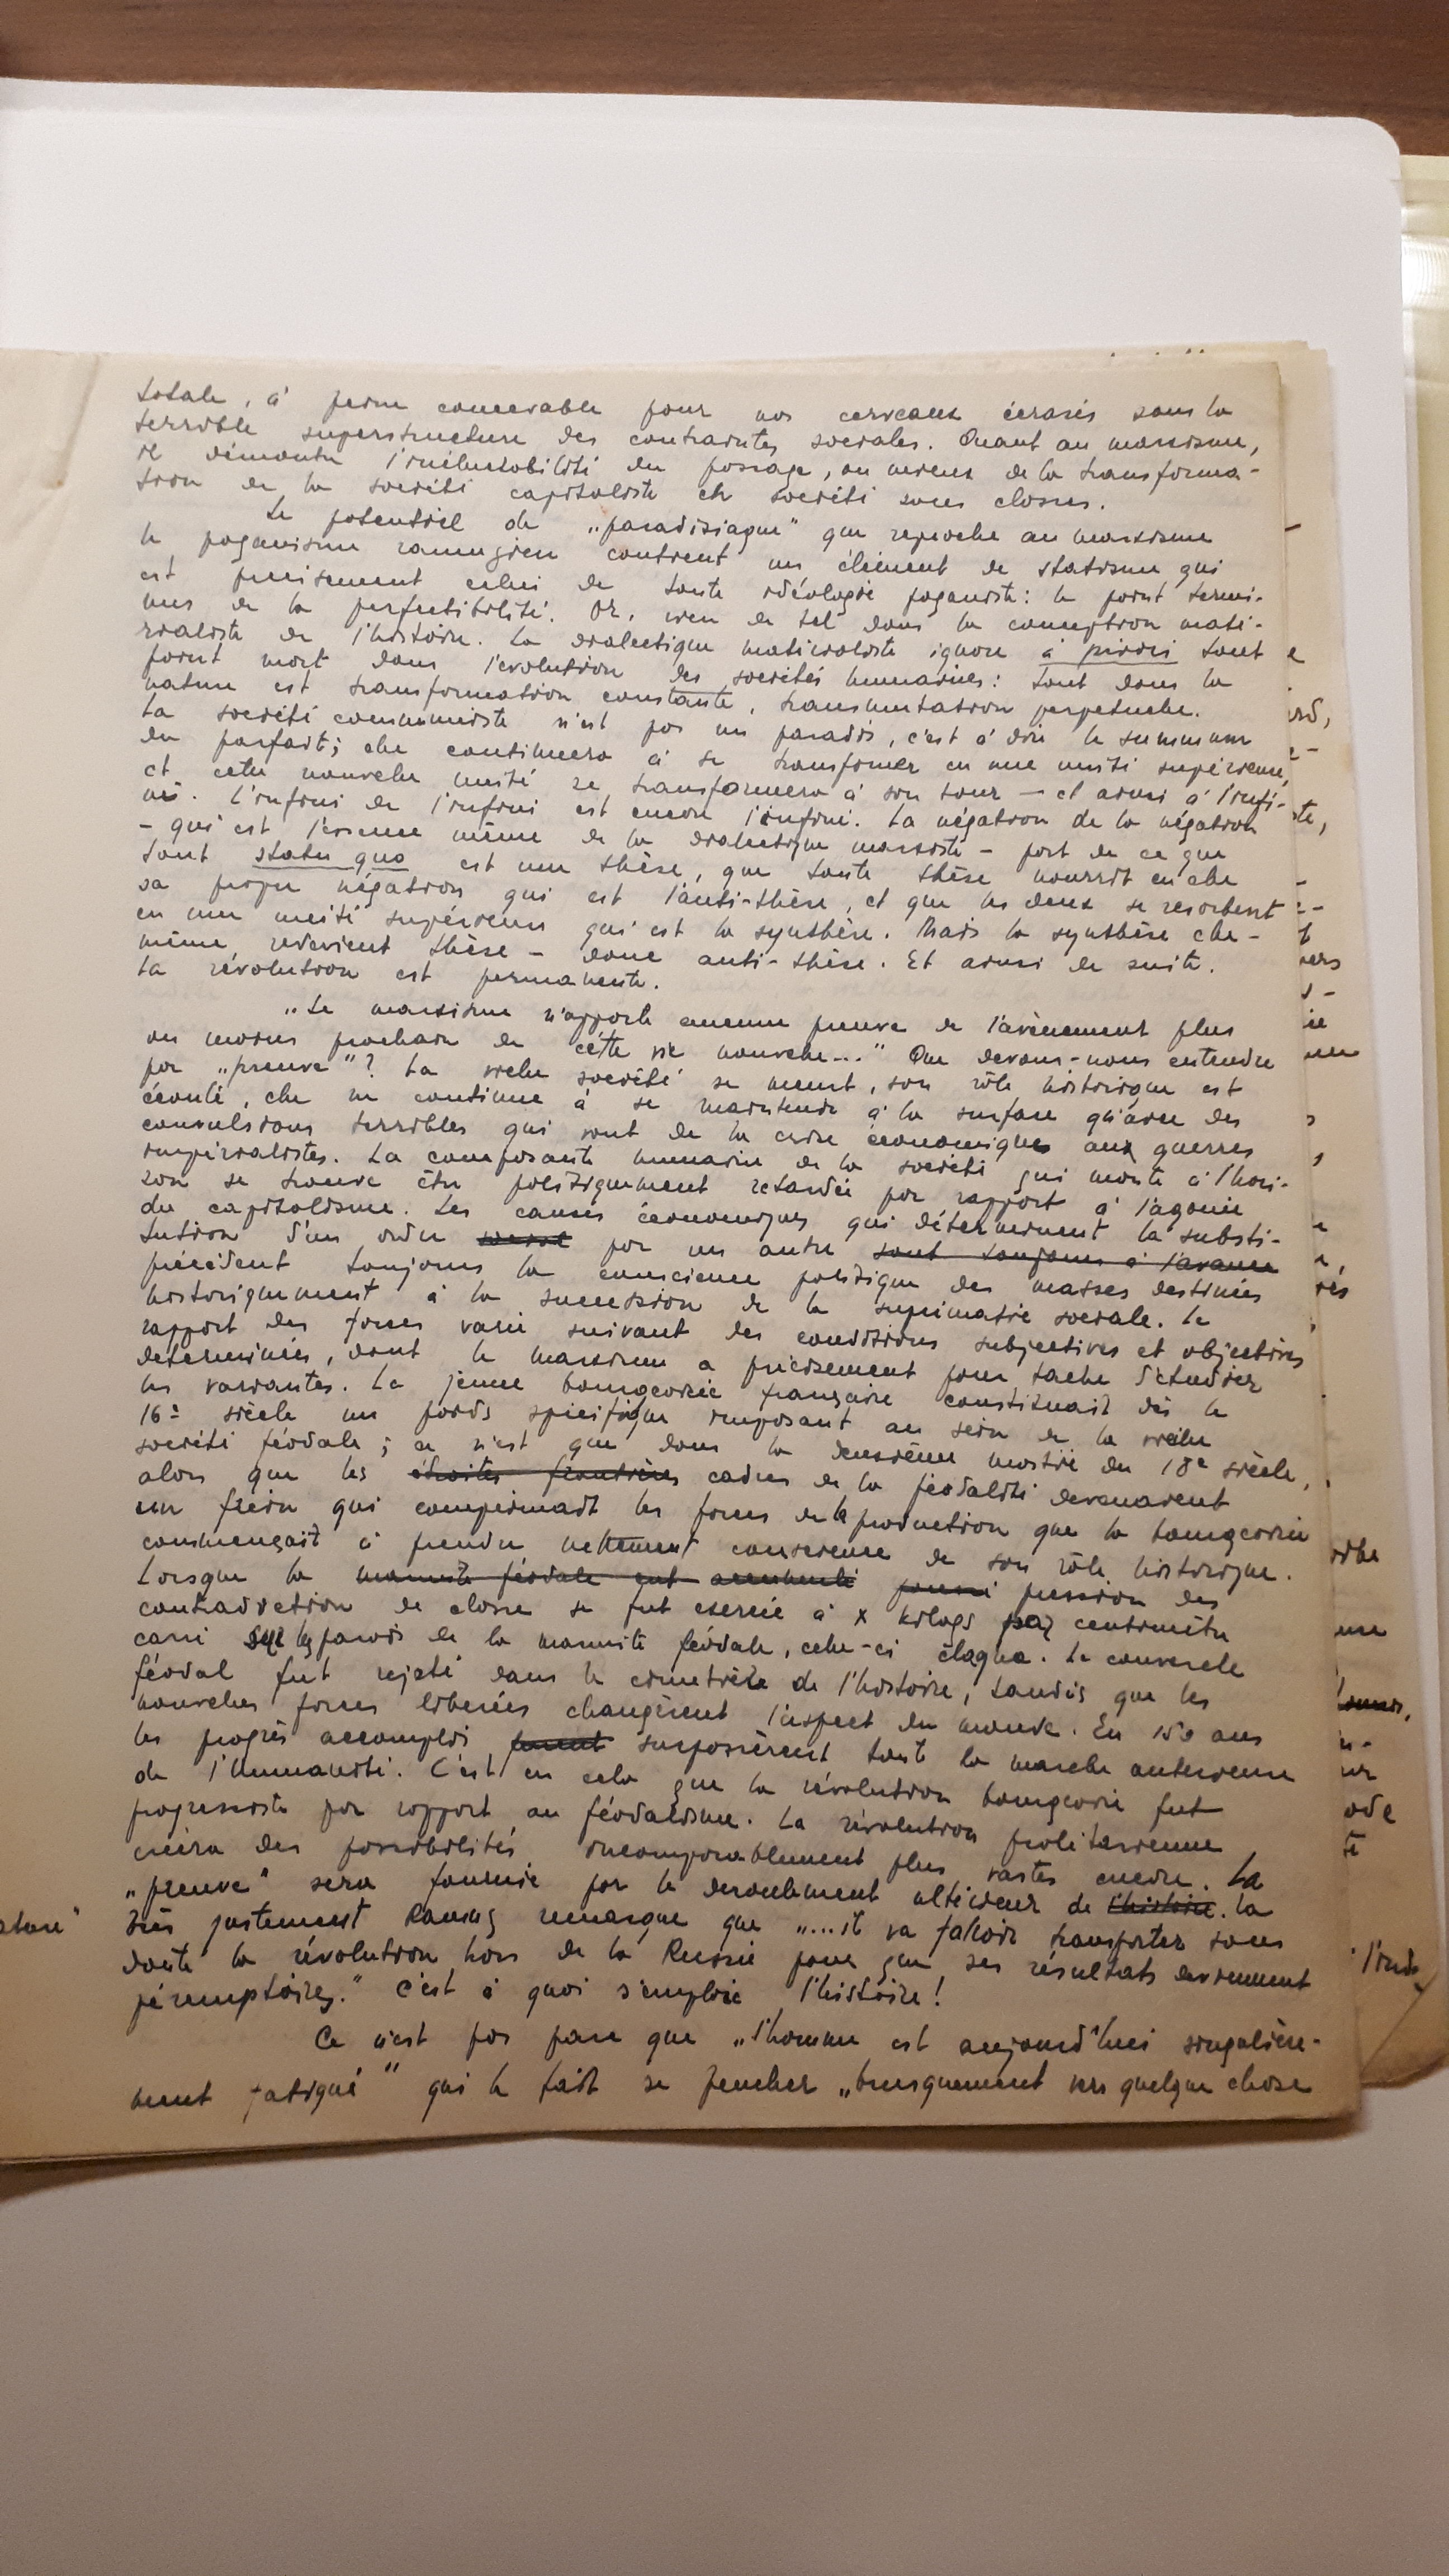 totale, à peine concevable pour nos cerveaux écrasés sous la
terrible superstructure des contraintes sociales. Quant au marxisme,
il démontre l'inéluctabilité du passage, ou mieux de la transforma-
tion de la société capitaliste en société sans classes.
Le potentiel de „paradisiaque" que reproche au marxisme
le paganisme ramuzien contient un élément de statisme qui
est précisement celui de toute idéologie paganiste: le point termi-
nus de la perfectibilité. Or, rien de tel dans la conception maté-
rialiste de l'histoire. La dialectique matérialiste ignore à priori tout
point mort dans l'evolution des sociétés humaines: tout dans la
nature est transformation constante, transmutation perpetuelle.
La société communiste n'est pas un paradis, c'est à dire le summum
du parfait; elle continuera à se transformer en une unité supérieure,
et cette nouvelle unité se transformera à son tour — et ainsi à l'infi-
ni. L'infini de l'infini est encore l'infini. La négation de la négation
- qui est l'essence même de la dialectique marxiste - part de ce que
tout statu quo est une thèse, que toute thèse nourrit en elle
sa propre négation qui est l'anti-thèse, et que les deux se resorbent
en une unité supérieure qui est la synthèse. Mais la synthèse elle-
même redevient thèse - donc anti-thèse. Et ainsi de suite.
La révolution est permanente.
„Le marxisme n'apporte aucune preuve de l'avènement plus
ou moins prochain de cette vie nouvelle..." Que devons-nous entendre
par „preuve"? La vieille société se meurt, son rôle historique est
écoulé, elle ne continue à se maintenir à la surface qu'avec des
convulsions terribles qui vont de la crise économique aux guerres
impérialistes. La composante humaine de la société qui monte à l'hori-
zon se trouve être politiquement retardée par rapport à l'agonie
du capitalisme. Les causes économiques qui déterminent la substi-
tution d'un ordre social par un autre sont toujours à l'avance
précèdent toujours la conscience politique des masses destinées
historiquement à la succession de la suprimatie sociale. Le
rapport des forces varie suivant des conditions subjectives et objectives
determinées, dont le marxisme a précisement pour tache d'étudier
les variantes. La jeune bourgeoisie française constituait dès le
16e siècle un poids spécifique imposant au sein de la vieille
société féodale; ce n'est que dans la deuxième moitié du 18e siècle,
alors que les étroites frontières cadres de la féodalité devenaient
un frein qui comprimait les forces de la production que la bourgeoisie
commençait à prendre nettement conscience de son rôle historique.
Lorsque la marmite féodale eut accumulé pression des
contradiction de classe se fut exercée à x kilogs par centimètre
carré sur les parois de la marmite féodale, celle-ci claqua. Le couvercle
féodal fut rejeté dans le cimetière de l'histoire, tandis que les
nouvelles forces liberées changèrent l'aspect du monde. En 150 ans
les progrès accomplis furent surpassèrent toute la marche anterieure
de l'humanité. C'est en cela que la révolution bourgeoise fut
progressiste par rapport au féodalisme. La révolution prolétarienne
créera des possibilités incomparablement plus vastes encore. La
„preuve" sera fournie par le deroulement ultérieur de l'histoire. La
Très justement Ramuz remarque que „...il va falloir transporter sans
doute la révolution hors de la Russie pour que ses résultats deviennent
péremptoires." C'est à quoi s'emploie l'histoire!
Ce n'est pas parce que „l'homme est aujourd'hui singulière-
ment fatigué" qui le fait se pencher „brusquement vers quelque chose